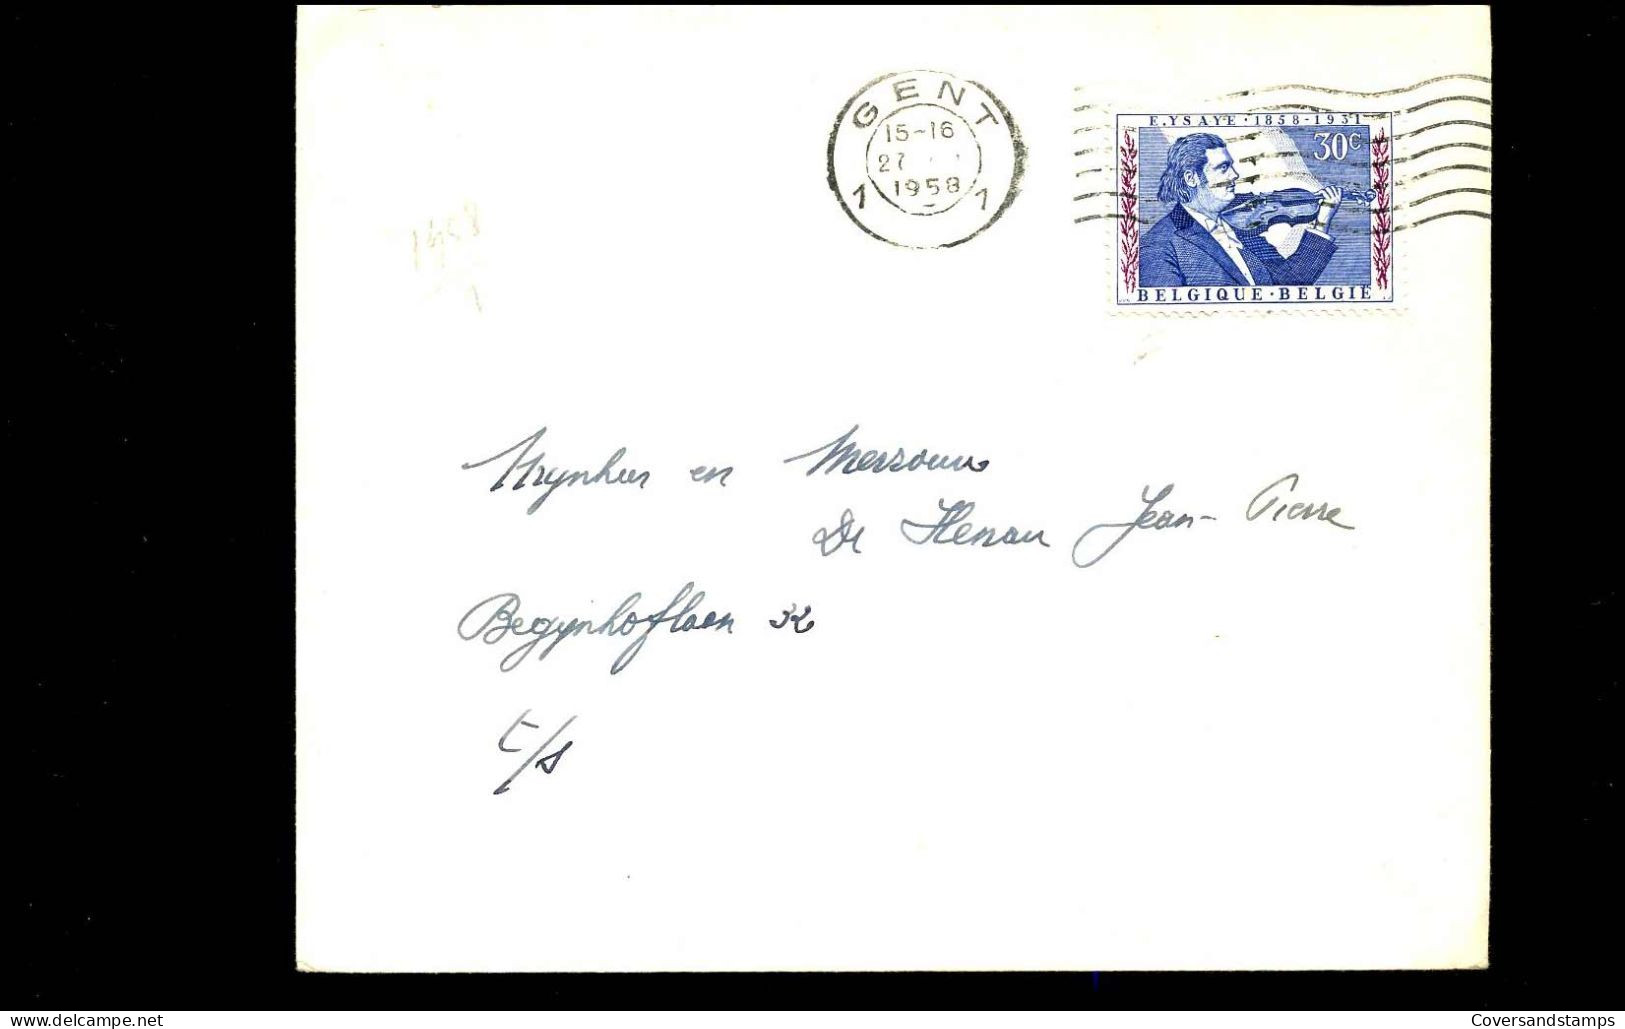 GENT
15-16
27
1958
1 1
E.YSAYE · 1858-1931
30C
BELGIQUE · BELGIE
Mynheer en Mevrouw
De Henau Jean-Pierre
Begijnhoflaan 32
E/S
www.delcampe.net
Coversandstamps